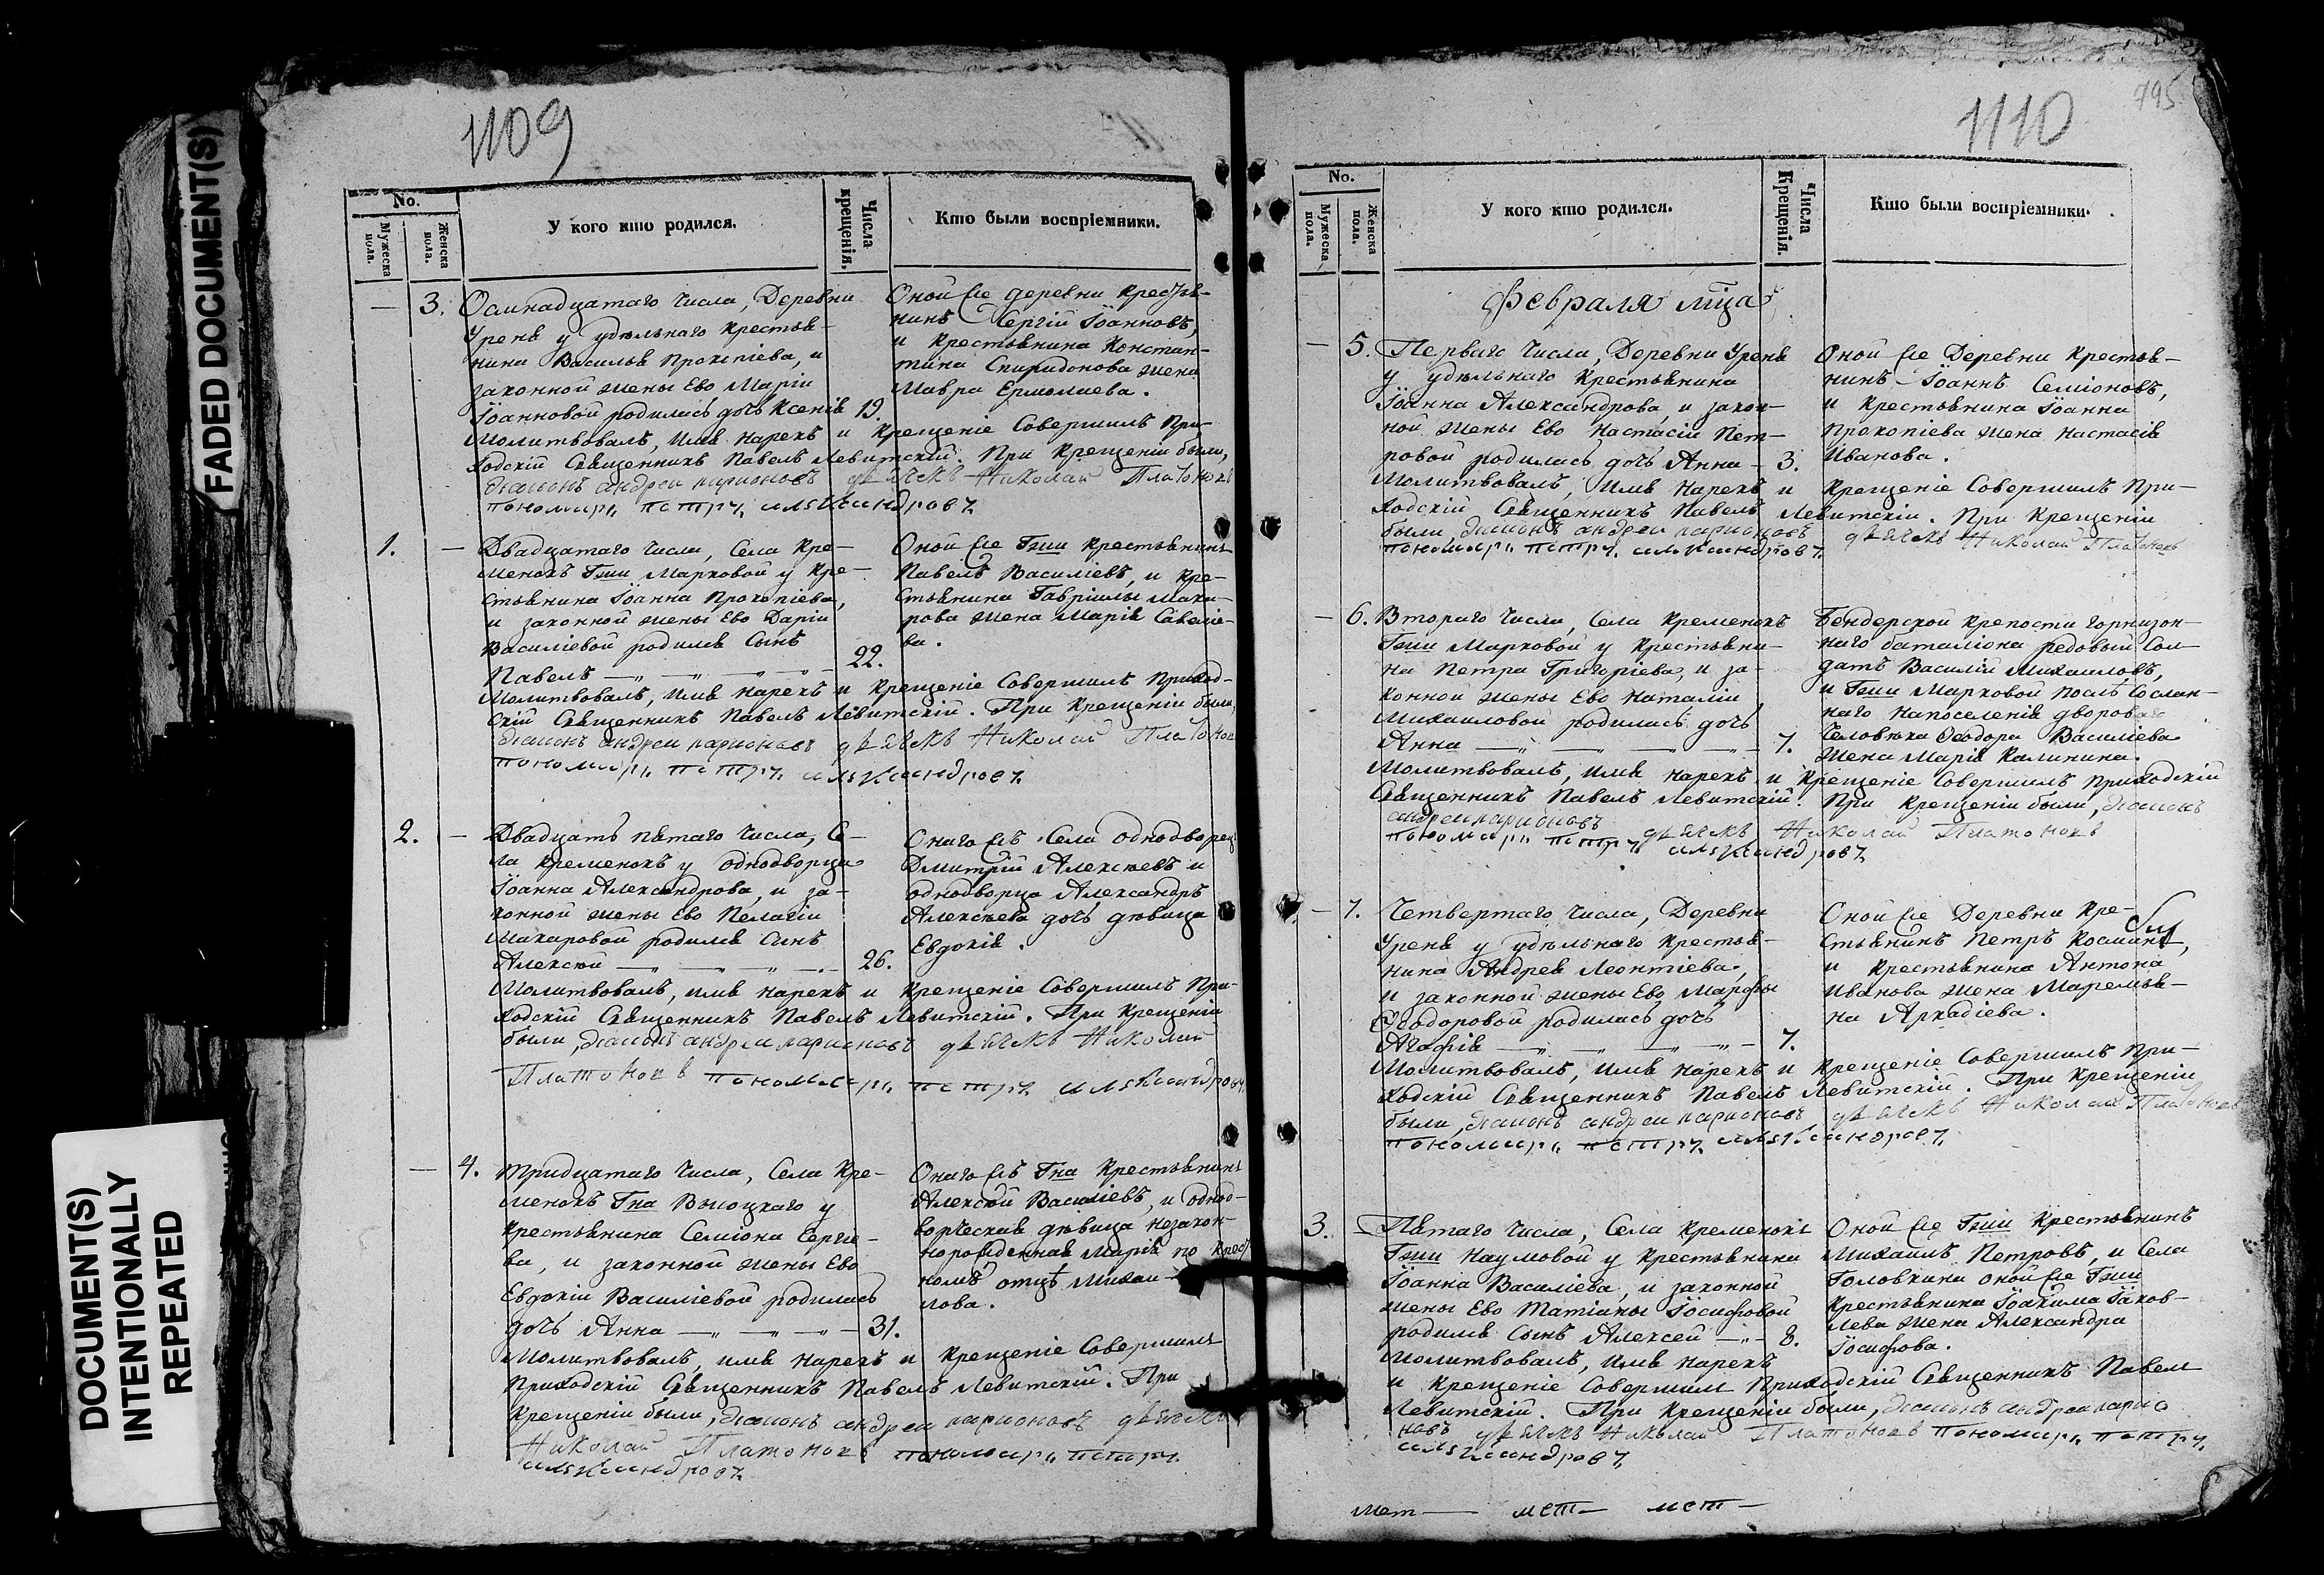 FADED DOCUMENT(S)
DOCUMENT(S)
INTENTIONALLY
REPEATED
1109
No.
Мужеска пола.
Женска пола.
У кого кто родился.
Числа крещенія.
Кто были воспріемники.
— 3. Осмнадцатаго числа, Деревни
Уреня у удѣльнаго крестья-
нина Василья Прокопіева, и
законной жены Ево Маріи
Іоанновой родилась дочь Ксенія 19.
Оной же деревни крестья-
нинъ Сергій Іоанновъ,
и крестьянина Констан-
тина Спиридонова жена
Мавра Ермолаева.
Молитвовалъ, имя нарекъ и крещеніе совершилъ При-
ходскій Священникъ Павелъ Левитскій. При крещеніи были,
діаконъ андреи ларионовъ дьячекъ Николай Платоновъ
пономарь петръ александровъ
1. — Двадцатаго числа, Села Кре-
менокъ Гжи Марковой у кре-
стьянина Іоанна Прокопіева,
и законной жены Ево Даріи
Василіевой родился сынъ
Павелъ — „ — „ — „ — 22.
Оной же Гжи крестьянинъ
Павелъ Василіевъ, и кре-
стьянина Гавріилы Мака-
рова жена Марія Савелie-
ва.
Молитвовалъ, имя нарекъ и крещеніе совершилъ Приход-
скій Священникъ Павелъ Левитскій. При крещеніи были,
діаконъ андреи ларионовъ дьячекъ Николай Платонов
пономарь петръ александровъ
2. — Двадцать пятаго числа, Се-
ла Кременокъ у однодворца
Іоанна Александрова, и за-
конной жены Ево Пелагіи
Макаровой родился сынъ
Алексѣй — „ — „ — „ — 26.
Онаго жъ Села однодворец
Дмитрій Алексѣевъ и
однодворца Александръ
Алексѣева дочь дѣвица
Евдокія.
Молитвовалъ, имя нарекъ и крещеніе совершилъ При-
ходскій Священникъ Павелъ Левитскій. При крещеніи
были, діаконъ андреи ларионовъ дьячекъ Николай
Платоновъ пономарь петръ александровъ
— 4. Тридцатаго числа, Села Кре-
менокъ Гна Высоцкаго у
крестьянина Семіона Сергіе-
ва, и законной жены Ево
Евдокіи Василіевой родилась
дочь Анна — „ — „ — „ — 31.
Онаго жъ Гна крестьянинъ
Алексѣй Василіевъ, и однод-
ворческая дѣвица незакон-
норожденная Марія по крест
номъ отцѣ Михаи-
лова.
Молитвовалъ, имя нарекъ и крещеніе совершилъ
Приходскій Священникъ Павелъ Левитскій. При
крещеніи были, діаконъ андреи ларионовъ дьячекъ
Николай Платоновъ пономарь петръ
александровъ
1110
795
No.
Мужеска пола.
Женска пола.
У кого кто родился.
Числа Крещенія.
Кто были воспріемники.
Февраля мца
— 5. Перваго числа, Деревни Уреня
у удѣльнаго крестьянина
Іоанна Александрова, и закон-
ной жены Ево Настасіи Пет-
ровой родилась дочь Анна — 3.
Оной же Деревни крестья-
нинъ Іоаннъ Семіоновъ,
и крестьянина Іоанна
Прокопіева жена Настасія
Иванова.
Молитвовалъ, имя нарекъ и крещеніе совершилъ При-
ходскій Священникъ Павелъ Левитскіи. При крещеніи
были, діаконъ андреи ларионовъ дьячекъ Николай Платоновъ
пономарь петръ александровъ
— 6. Втораго числа, Села Кременокъ
Гжи Марковой у крестьяни-
на Петра Григоріева, и за-
конной жены Ево Наталіи
Михаиловой родилась дочь
Анна — „ — „ — „ — 7.
Бендерской крепости горнизон-
наго баталіона редовый Сол-
датъ Василій Михаиловъ,
и Гжи Марковой послѣ Сослан-
наго напоселенія дворов
Человѣка Ѳеодора Василіева
жена Марія Калинина.
Молитвовалъ, имя нарекъ и крещеніе совершилъ Приходскій
Священникъ Павелъ Левитскій. При крещеніи были, діаконъ
андреи ларионовъ дьячекъ Николай Платоновъ
пономарь петръ александровъ
— 7. Четвертаго числа, Деревни
Уреня у удѣльнаго крестья-
нина Андрея Леонтіева,
и законной жены Ево Марфы
Ѳеодоровой родилась дочь
Агафія — „ — „ — „ — 7.
Оной же Деревни Кре-
стьянинъ Петръ Косминъ,
и крестьянина Антона
Иванова жена Маремья-
на Аркадіева.
Молитвовалъ, имя нарекъ и крещеніе совершилъ При-
ходскій Священникъ Павелъ Левитскій. При крещеніи
были, діаконъ андреи ларионовъ дьячекъ Николай Платоновъ
пономарь петръ александровъ
3. — Пятаго числа, Села Кременокъ
Гжи Наумовой у крестьянина
Іоанна Василіева, и законной
жены Ево Татіаны Іосифовой
родился сынъ Алексей — „ — 8.
Оной же Гжи крестьянинъ
Михаилъ Петровъ, и Села
Головкина оной же Гжи
крестьянина Іоакима Іаков-
лева жена Александра
Іосифова.
Молитвовалъ, имя нарекъ
и крещеніе совершилъ Приходскій Священникъ Павелъ
Левитскій. При крещеніи были, діаконъ андреи ларио
новъ дьячекъ Николай Платоновъ пономарь петръ
александровъ
мет — мет — мет —